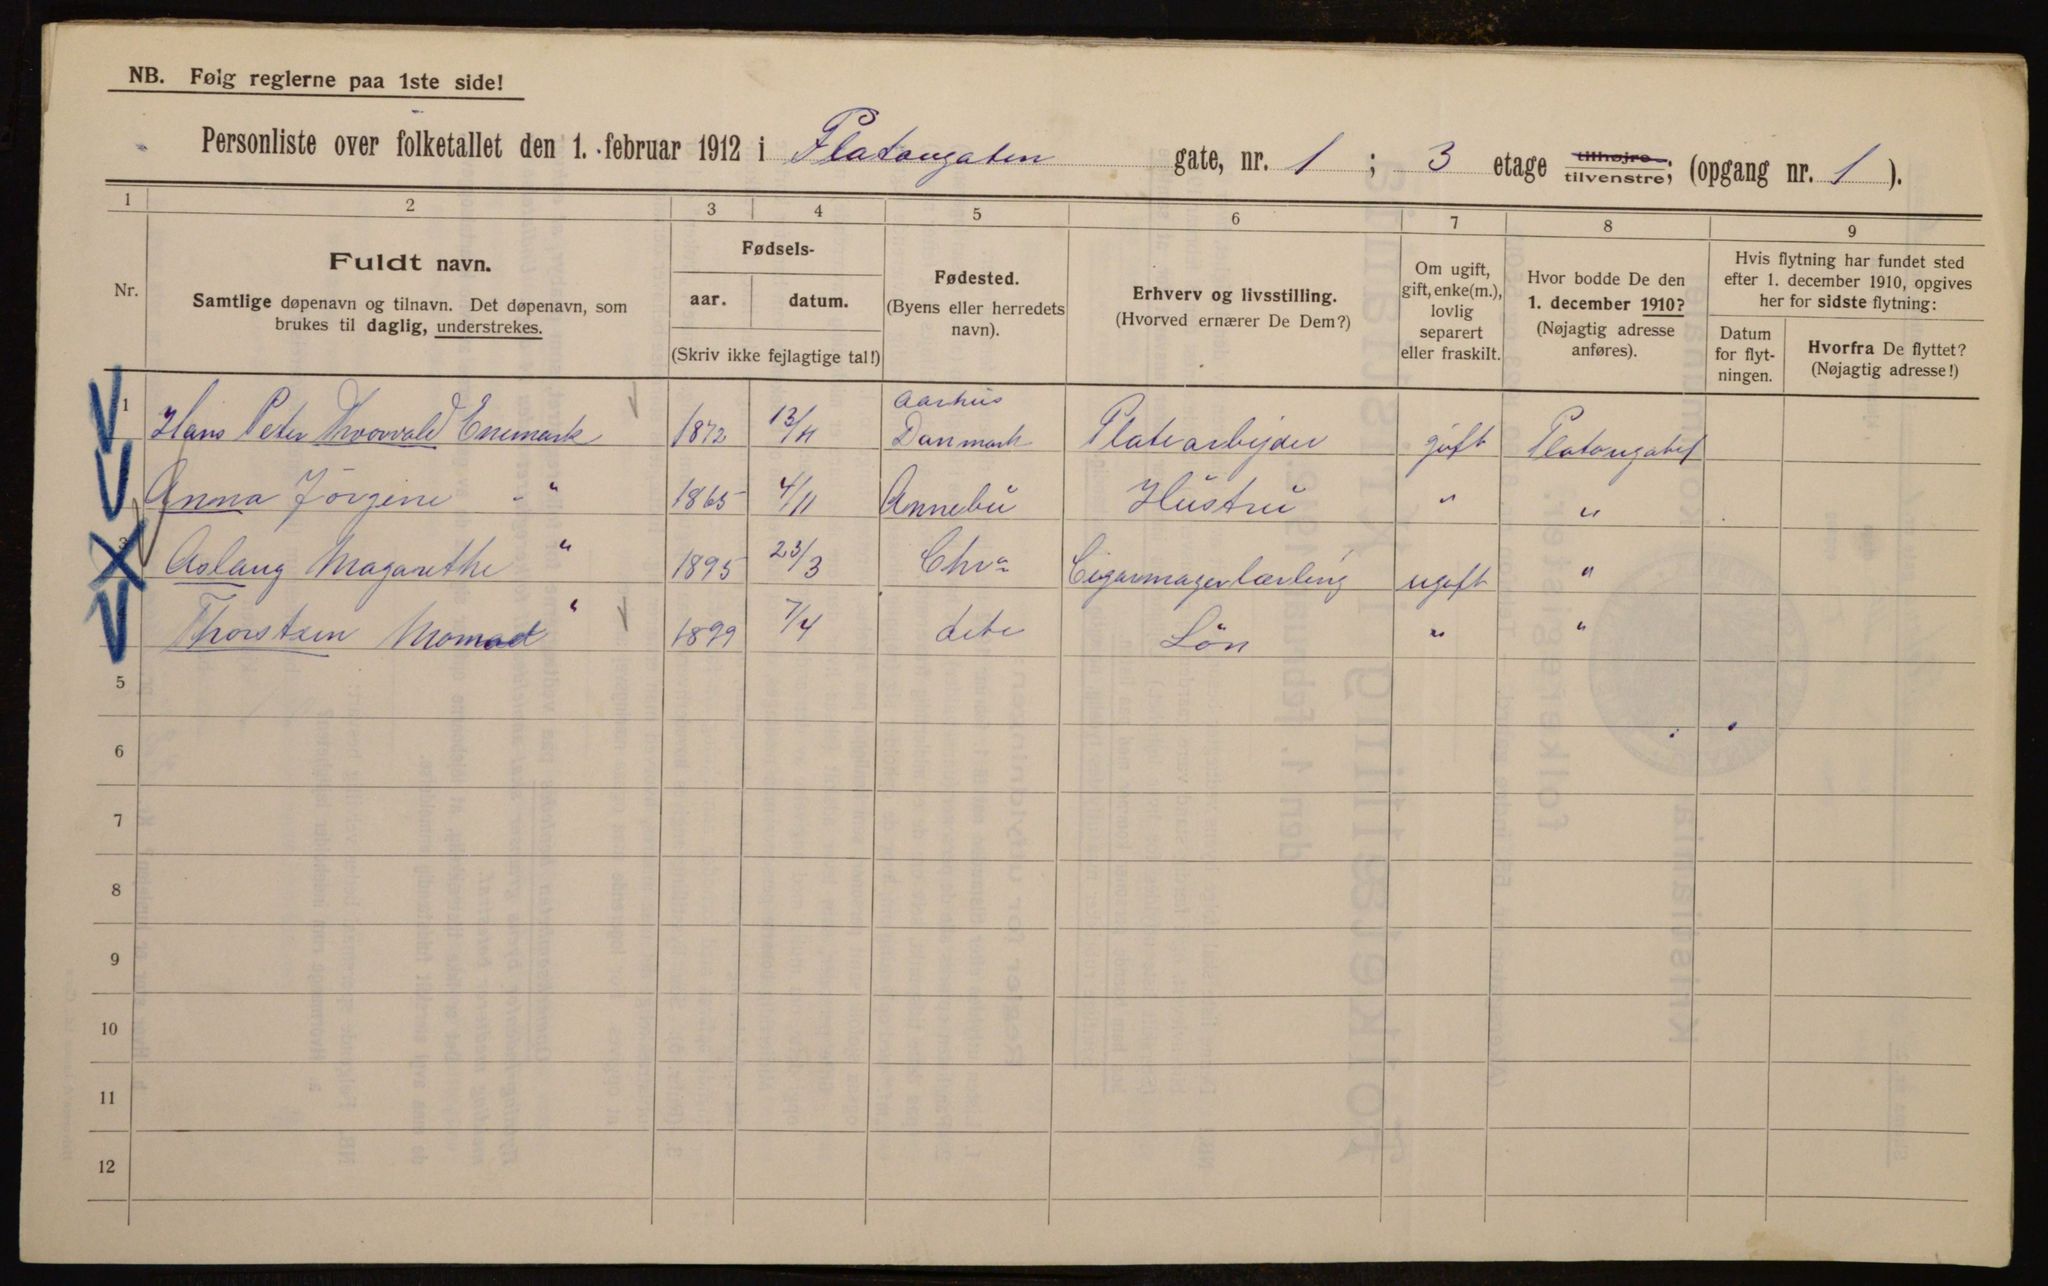 NB. Følg reglerne paa 1ste side!
Personliste over folketallet den 1. februar 1912 i Platougaten gate, nr. 1 ; 3 etage tilhøjre tilvenstre; (opgang nr. 1 ).
1 2 3 4 5 6 7 8 9
Nr.
Fuldt navn.
Samtlige døpenavn og tilnavn. Det døpenavn, som
brukes til daglig, understrekes.
Fødsels-
aar. datum.
(Skriv ikke fejlagtige tal!)
Fødested.
(Byens eller herredets
navn).
Erhverv og livsstilling.
(Hvorved ernærer De Dem?)
Om ugift,
gift, enke(m.),
lovlig
separert
eller fraskilt.
Hvor bodde De den
1. december 1910?
(Nøjagtig adresse
anføres).
Hvis flytning har fundet sted
efter 1. december 1910, opgives
her for sidste flytning:
Datum
for flyt-
ningen.
Hvorfra De flyttet?
(Nøjagtig adresse!)
Aarhus
1 Hans Peter Thorvald Enemark 1872 13/11 Danmark Platearbejder gift Platougate 1
Anna Jörgine - " 1865 4/11 Annebu Hustru " "
3 Aslaug Magarethe " 1895 23/3 Chra Cigarmagerlærling ugift "
Thorstein " 1899 7/4 dito Sön " "
5
6
7
8
9
10
11
12